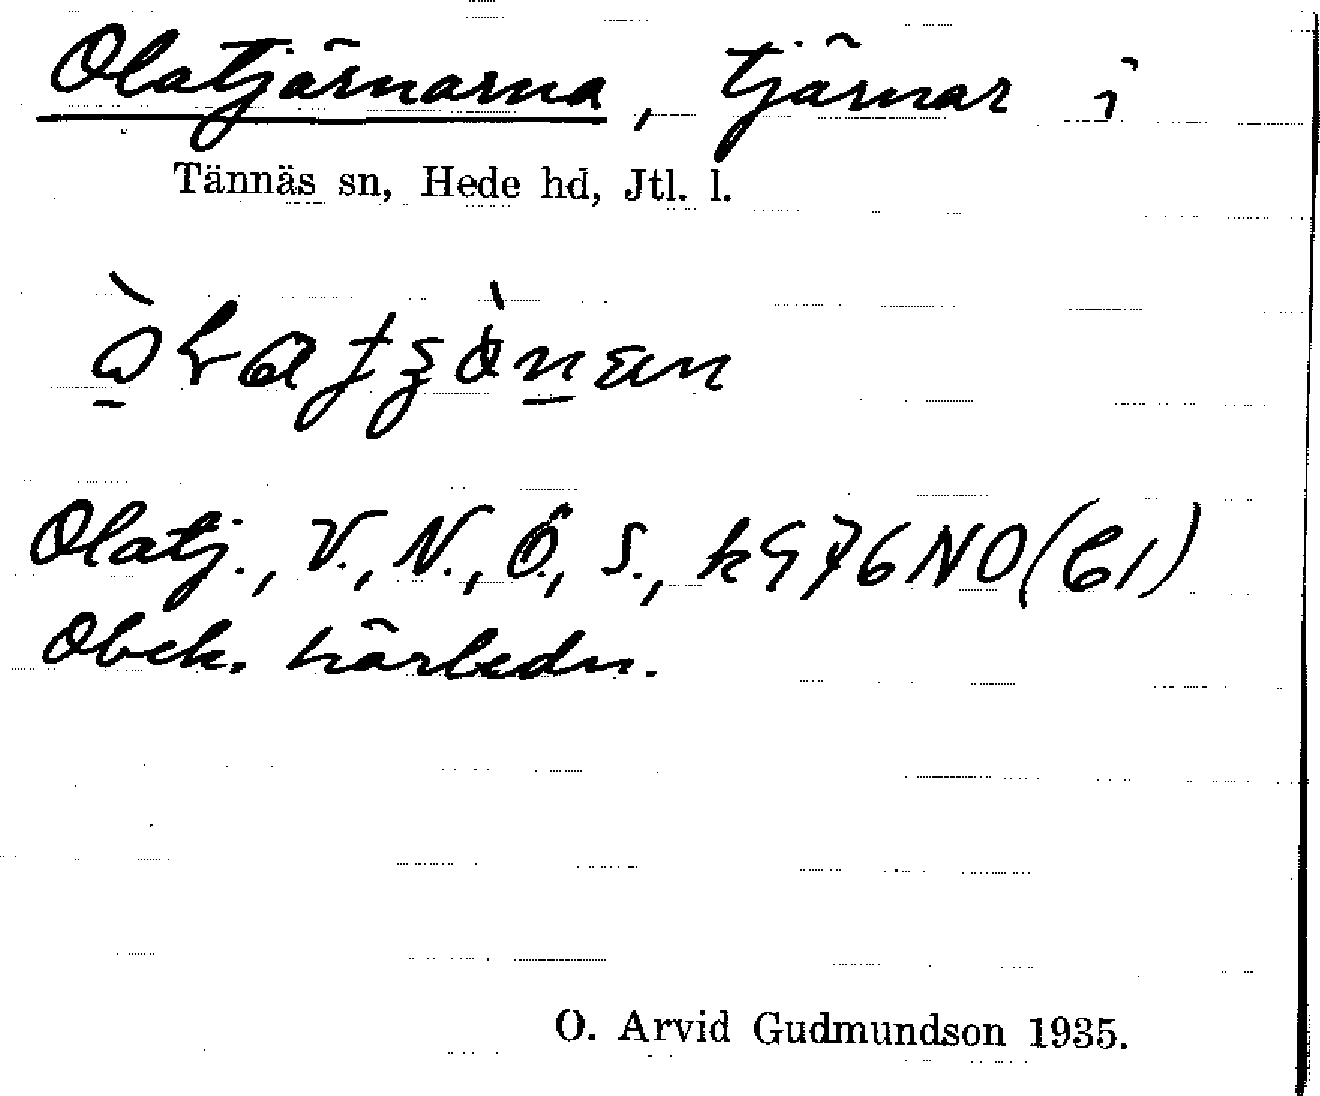 Olatjärnarna, tjärnar i
Tännäs sn, Hede hd, Jtl. l.
Olatj., V., N., Ö., S., k 976 NO (61)
Obek. härledn.
O. Arvid Gudmundson 1935.